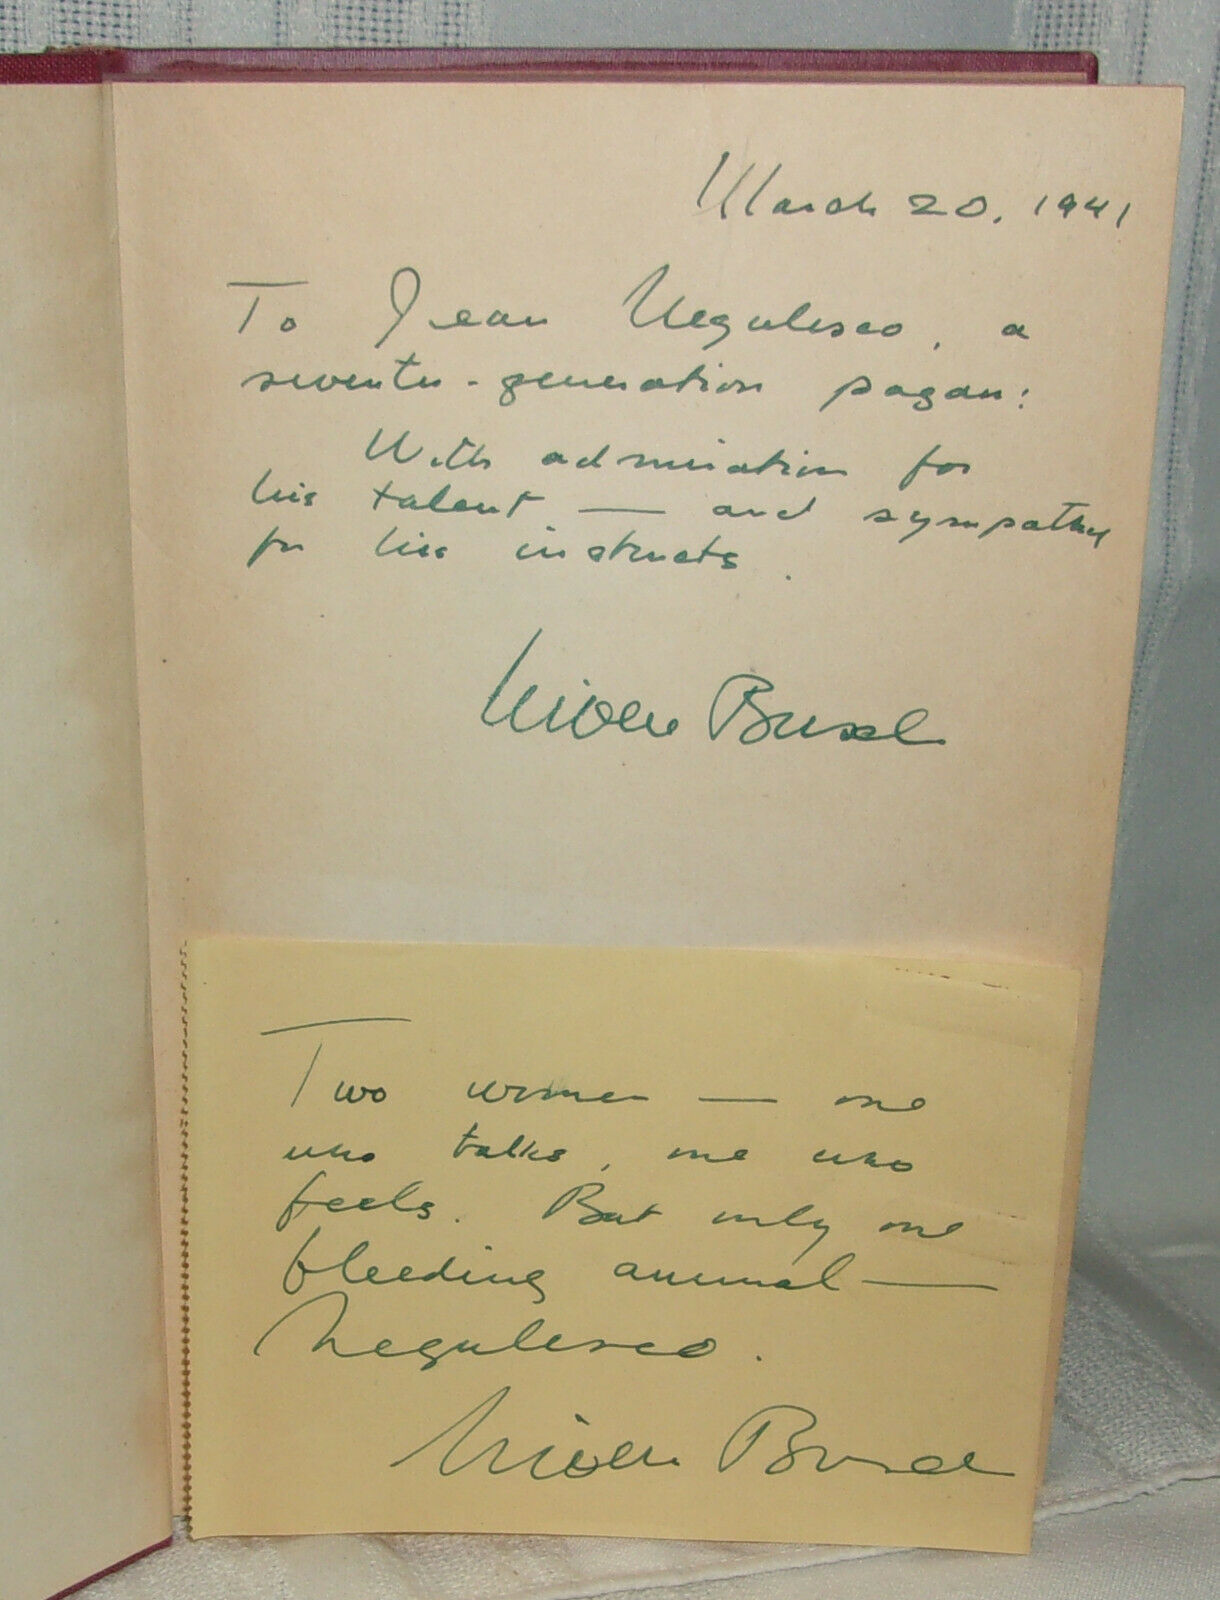 March 20, 1941
To Jean Negulesco, a
seventh-generation pagan:
With admiration for
his talent — and sympathy
for his instincts.
Niven Busch
Two women — one
who talks, one who
feels. But only one
bleeding animal —
Negulesco.
Niven Busch